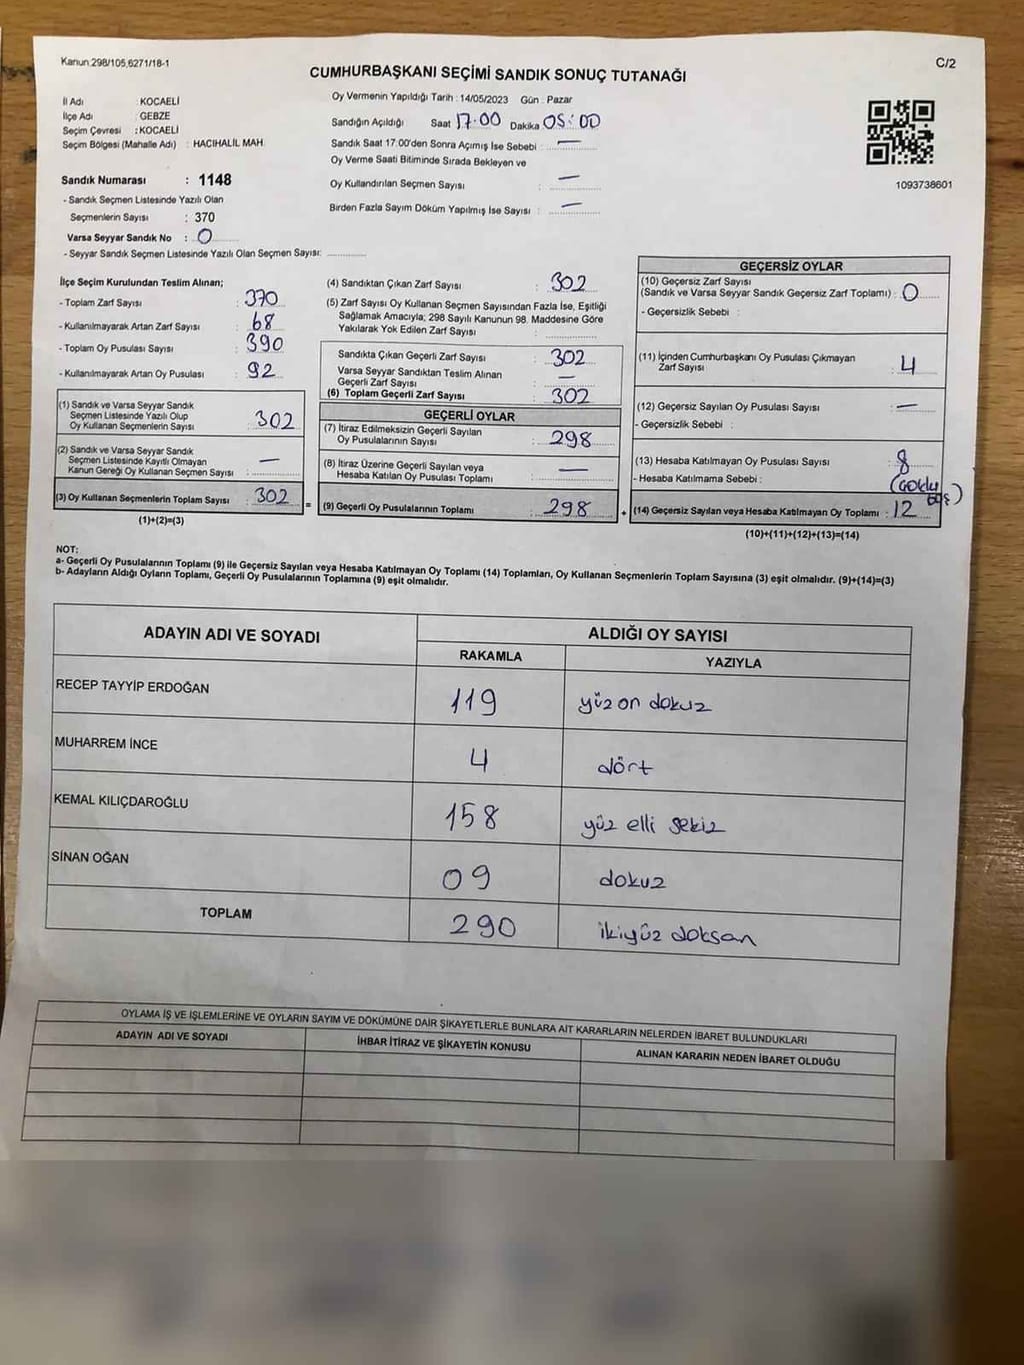 Kanun 298/105,6271/18-1
C/2
CUMHURBAŞKANI SEÇİMİ SANDIK SONUÇ TUTANAĞI
İl Adı : KOCAELİ
İlçe Adı : GEBZE
Seçim Çevresi : KOCAELİ
Seçim Bölgesi (Mahalle Adı) : HACIHALİL MAH.
Oy Vermenin Yapıldığı Tarih : 14/05/2023 Gün : Pazar
Sandığın Açıldığı Saat 17.00 Dakika 05:00
Sandık Saat 17.00'den Sonra Açımış İse Sebebi : —
Oy Verme Saati Bitiminde Sırada Bekleyen ve
Oy Kullandırılan Seçmen Sayısı : —
Birden Fazla Sayım Döküm Yapılmış İse Sayısı : —
1093738601
Sandık Numarası : 1148
- Sandık Seçmen Listesinde Yazılı Olan
Seçmenlerin Sayısı : 370
Varsa Seyyar Sandık No : 0
- Seyyar Sandık Seçmen Listesinde Yazılı Olan Seçmen Sayısı:
İlçe Seçim Kurulundan Teslim Alınan;
- Toplam Zarf Sayısı : 370
- Kullanılmayarak Artan Zarf Sayısı : 68
- Toplam Oy Pusulası Sayısı : 390
- Kullanılmayarak Artan Oy Pusulası : 92
(1) Sandık ve Varsa Seyyar Sandık
Seçmen Listesinde Yazılı Olup
Oy Kullanan Seçmenlerin Sayısı : 302
(2) Sandık ve Varsa Seyyar Sandık
Seçmen Listesinde Kayıtlı Olmayan
Kanun Gereği Oy Kullanan Seçmen Sayısı : —
(3) Oy Kullanan Seçmenlerin Toplam Sayısı : 302 =
(1)+(2)=(3)
(4) Sandıktan Çıkan Zarf Sayısı : 302
(5) Zarf Sayısı Oy Kullanan Seçmen Sayısından Fazla İse, Eşitliği
Sağlamak Amacıyla; 298 Sayılı Kanunun 98. Maddesine Göre
Yakılarak Yok Edilen Zarf Sayısı :
Sandıkta Çıkan Geçerli Zarf Sayısı : 302
Varsa Seyyar Sandıktan Teslim Alınan
Geçerli Zarf Sayısı : —
(6) Toplam Geçerli Zarf Sayısı : 302
GEÇERLİ OYLAR
(7) İtiraz Edilmeksizin Geçerli Sayılan
Oy Pusulalarının Sayısı : 298
(8) İtiraz Üzerine Geçerli Sayılan veya
Hesaba Katılan Oy Pusulası Toplamı : —
(9) Geçerli Oy Pusulalarının Toplamı : 298 +
GEÇERSİZ OYLAR
(10) Geçersiz Zarf Sayısı
(Sandık ve Varsa Seyyar Sandık Geçersiz Zarf Toplamı) : 0
- Geçersizlik Sebebi :
(11) İçinden Cumhurbaşkanı Oy Pusulası Çıkmayan
Zarf Sayısı : 4
(12) Geçersiz Sayılan Oy Pusulası Sayısı : —
- Geçersizlik Sebebi :
(13) Hesaba Katılmayan Oy Pusulası Sayısı : 8
- Hesaba Katılmama Sebebi :
(14) Geçersiz Sayılan veya Hesaba Katılmayan Oy Toplamı : 12
(10)+(11)+(12)+(13)=(14)
NOT:
a- Geçerli Oy Pusulalarının Toplamı (9) ile Geçersiz Sayılan veya Hesaba Katılmayan Oy Toplamı (14) Toplamları, Oy Kullanan Seçmenlerin Toplam Sayısına (3) eşit olmalıdır. (9)+(14)=(3)
b- Adayların Aldığı Oyların Toplamı, Geçerli Oy Pusulalarının Toplamına (9) eşit olmalıdır.
ADAYIN ADI VE SOYADI
ALDIĞI OY SAYISI
RAKAMLA YAZIYLA
RECEP TAYYİP ERDOĞAN 119 yüz on dokuz
MUHARREM İNCE 4 dört
KEMAL KILIÇDAROĞLU 158 yüz elli sekiz
SİNAN OĞAN 09 dokuz
TOPLAM 290 ikiyüz doksan
OYLAMA İŞ VE İŞLEMLERİNE VE OYLARIN SAYIM VE DÖKÜMÜNE DAİR ŞİKAYETLERLE BUNLARA AİT KARARLARIN NELERDEN İBARET BULUNDUKLARI
ADAYIN ADI VE SOYADI İHBAR İTİRAZ VE ŞİKAYETİN KONUSU ALINAN KARARIN NEDEN İBARET OLDUĞU